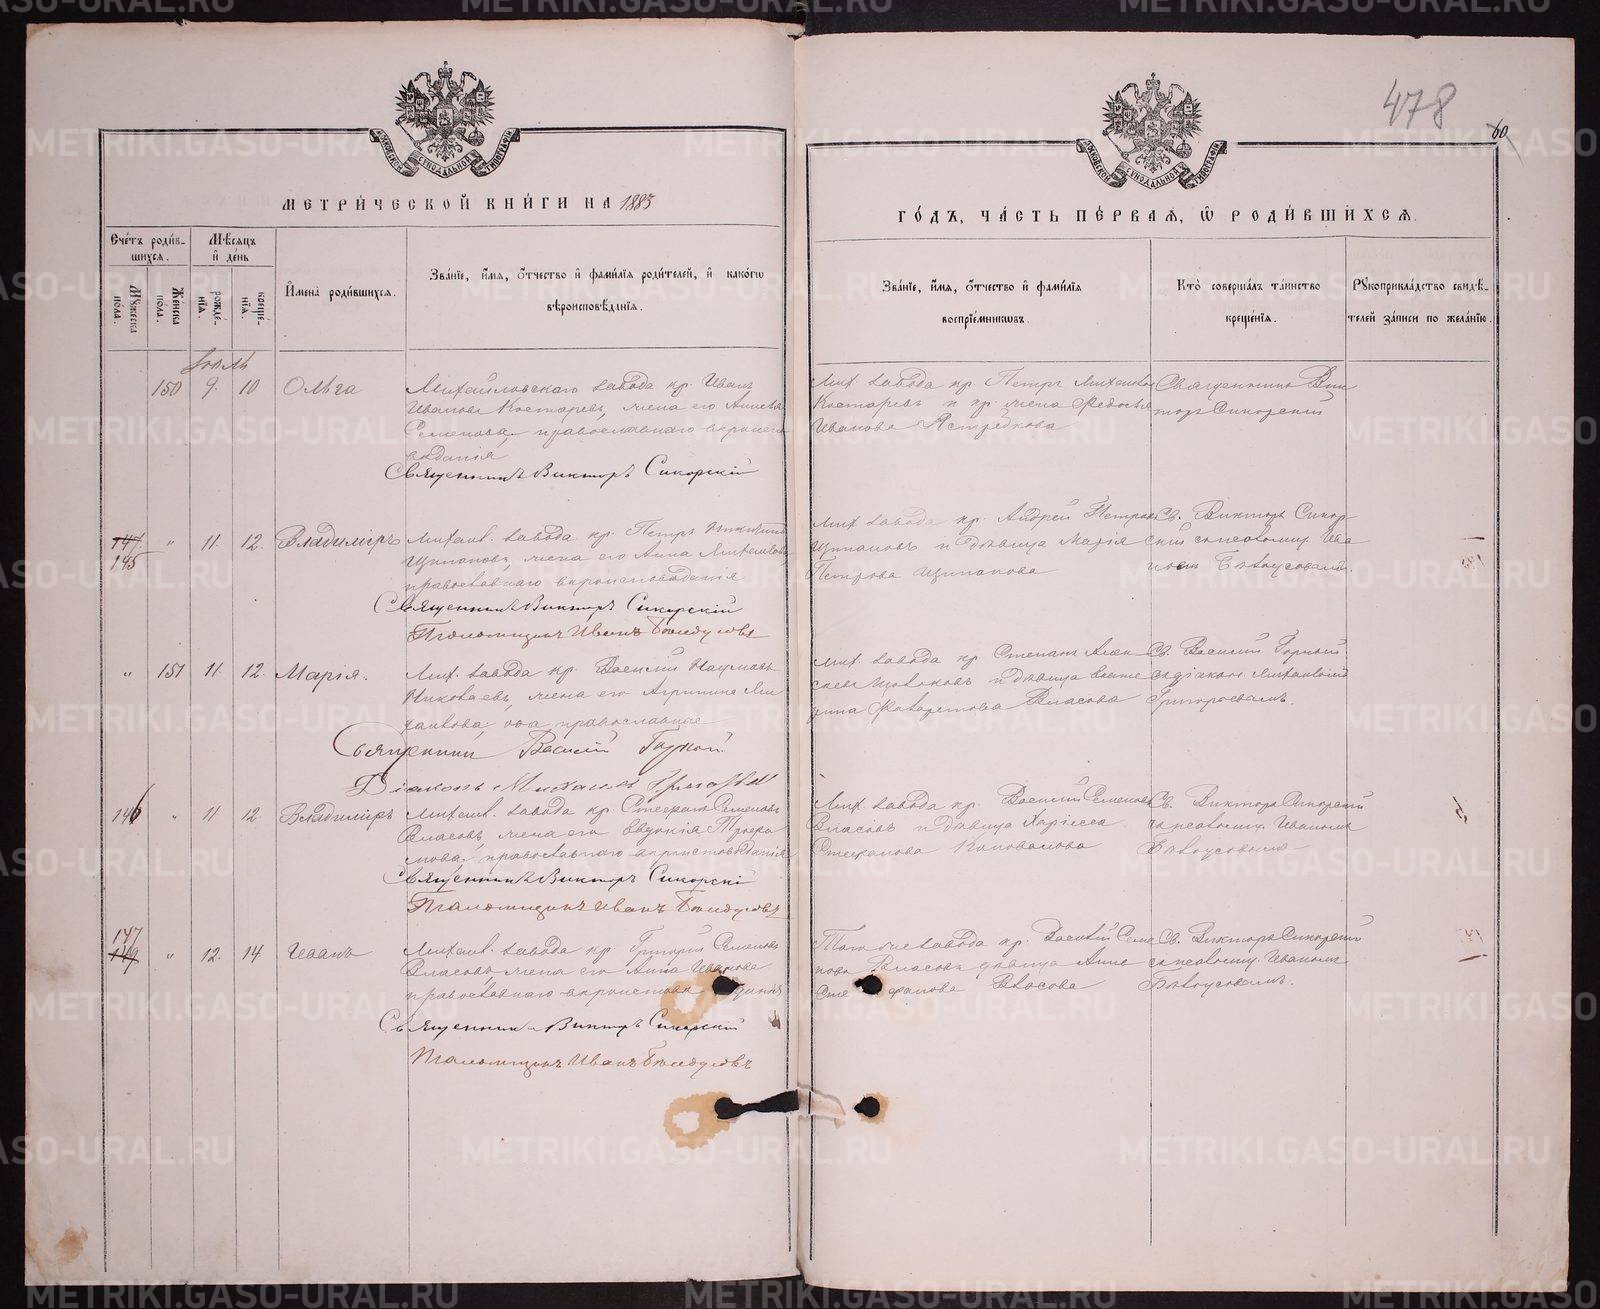 478
60
МОСКОВСКОЙ СѴНОДАЛЬНОЙ ТИПОГРАФІИ
МОСКОВСКОЙ СѴНОДАЛЬНОЙ ТИПОГРАФІИ
МЕТРИ́ЧЕСКОЙ КНИ́ГИ НА 1883
ГО́ДЪ, ЧА́СТЬ ПЕ́РВАЯ, Ѡ РОДИ́ВШИХСЯ.
Сче́тъ роди́в-
шихся.
Мѣсяцъ
и де́нь
Му́жеска
по́ла.
Же́нска
по́ла.
рожде́-
нїя.
креще́-
нїя.
Имена̀ роди́вшихся.
Зва́нїе, и́мя, о́тчество и фами́лїя роди́телей, и како́гѡ
вѣроисповѣ́данїя.
Зва́нїе, и́мя, о́тчество и фами́лїя
воспрїе́мникѡвъ.
Кто̀ соверша́лъ та́инство
креще́нїя.
Рꙋкоприкла́дство свидѣ́-
телей за́писи по жела́нїю.
Юль
150 9. 10 Ольга
Михайловскаго завода кр. Иванъ
Ивановъ Костаревъ, жена его
Семенова православнаго вероиспо
ведания
Священникъ Викторъ Сикорскій
Мих. завода кр. Петръ
Костаревъ и кр. жена Федосья
Иванова
Священникъ Вик
торъ Сикорский
147
145 " 11. 12. Владимiръ
Михаил. завода кр. Петръ
Щипановъ, жена его Анна
православнаго вероисповедания
Священникъ Викторъ Сикорскій
Псаломщикъ Иванъ Белоусовъ
Мих. завода кр. Андрей Петровъ
Щипановъ и девица Марія
Петрова Щипанова
Св. Викторъ Сикор-
ский съ псаломщ. Ива
номъ Белоусовымъ.
" 151 11. 12. Марія.
Мих. завода кр. Василий Наумовъ
Николаевъ, жена его Агрипина Ми
хайлова, оба православные
Священникъ Василій Горной
Діаконъ Михаилъ
Мих. завода кр. Степанъ Алек
и девица
Власова
Св. Василий Горный
съ діакон. Михаиломъ
Григорьевымъ.
146 " 11 12. Владимiръ
Михаил. завода кр. Стефанъ Семеновъ
Власовъ, жена его Евдокія
мова, православнаго вероисповедания
Священникъ Викторъ Сикорскій
Псаломщикъ Иванъ Белоусовъ
Мих. завода кр. Василий Семеновъ
Власовъ и девица
Стефанова Коновалова
Св. Викторъ Сикорский
съ псаломщ. Иваномъ
Белоусовымъ
147
149 " 12. 14 Иванъ
Михаил. завода кр. Григорий Семеновъ
Власовъ, жена его Анна Иванова
православнаго вероисповедания
Священникъ Викторъ Сикорскій
Псаломщикъ Иванъ Белоусовъ
Того же завода кр. Василий Семе
новъ Власовъ девица Анна
Стефанова Власова
Св. Викторъ Сикорский
съ псаломщ. Иваномъ
Белоусовымъ.
METRIKI.GASO-URAL.RU